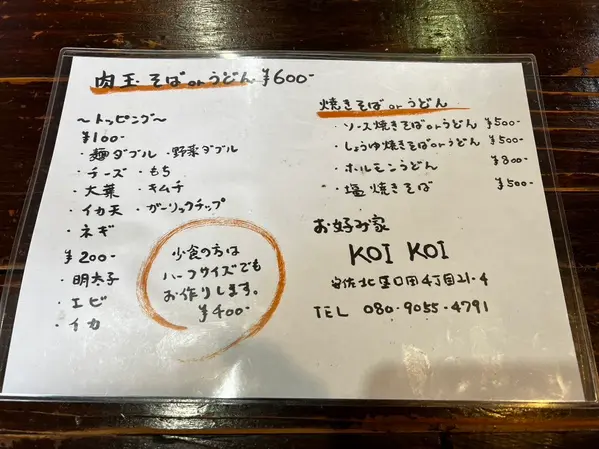 肉玉・そばorうどん ¥600-
～トッピング～
¥100-
・麺ダブル ・野菜ダブル
・チーズ ・もち
・大葉 ・キムチ
・イカ天 ・ガーリックチップ
・ネギ
¥200-
・明太子
・エビ
・イカ
少食の方は
ハーフサイズでも
お作りします。
¥400-
焼きそばorうどん
・ソース焼きそばorうどん ¥500-
・しょうゆ焼きそばorうどん ¥500-
・ホルモンうどん ¥800-
・塩焼きそば ¥500-
お好み家
KOI KOI
安佐北区口田4丁目21-4
TEL 080-9055-4791